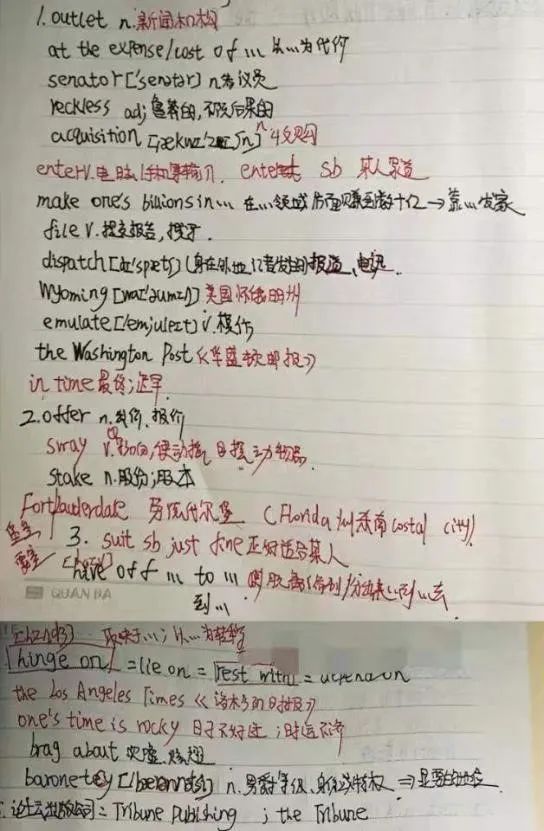 1. outlet n.新闻机构
at the expense/cost of ... 以...为代价
senator ['senətər] n.参议员
reckless adj 鲁莽的,不顾后果的
acquisition [ˌækwɪ'zɪʃn] n 收购
enter v.电脑 输入. sb 某人
make one's billions in ... 在...领域 赚到数十亿 → 靠...发家
file v.提交报告,
dispatch [dɪ'spætʃ] (身在外地记者发的)报道、电讯.
Wyoming [waɪ'əʊmɪŋ] 美国怀俄明州
emulate ['emjuleɪt] v.模仿
the Washington Post 《华盛顿邮报》
in time 最终;迟早
2. offer n.出价.报价
sway v.
stake n.股份;股本
Fort Lauderdale 劳德代尔堡 (Florida 州东南 costal city)
3. suit sb just fine 正好适合某人
off ... to ...
到...
QUANDA
取决于...; 以...为转移
hinge on = lie on = rest with =
the Los Angeles Times 《洛杉矶日报》
one's time is rocky 日子不好过;时运不济
brag about 吹嘘.炫耀
n.男爵等级、身份
论坛出版公司 = Tribune Publishing ; the Tribune